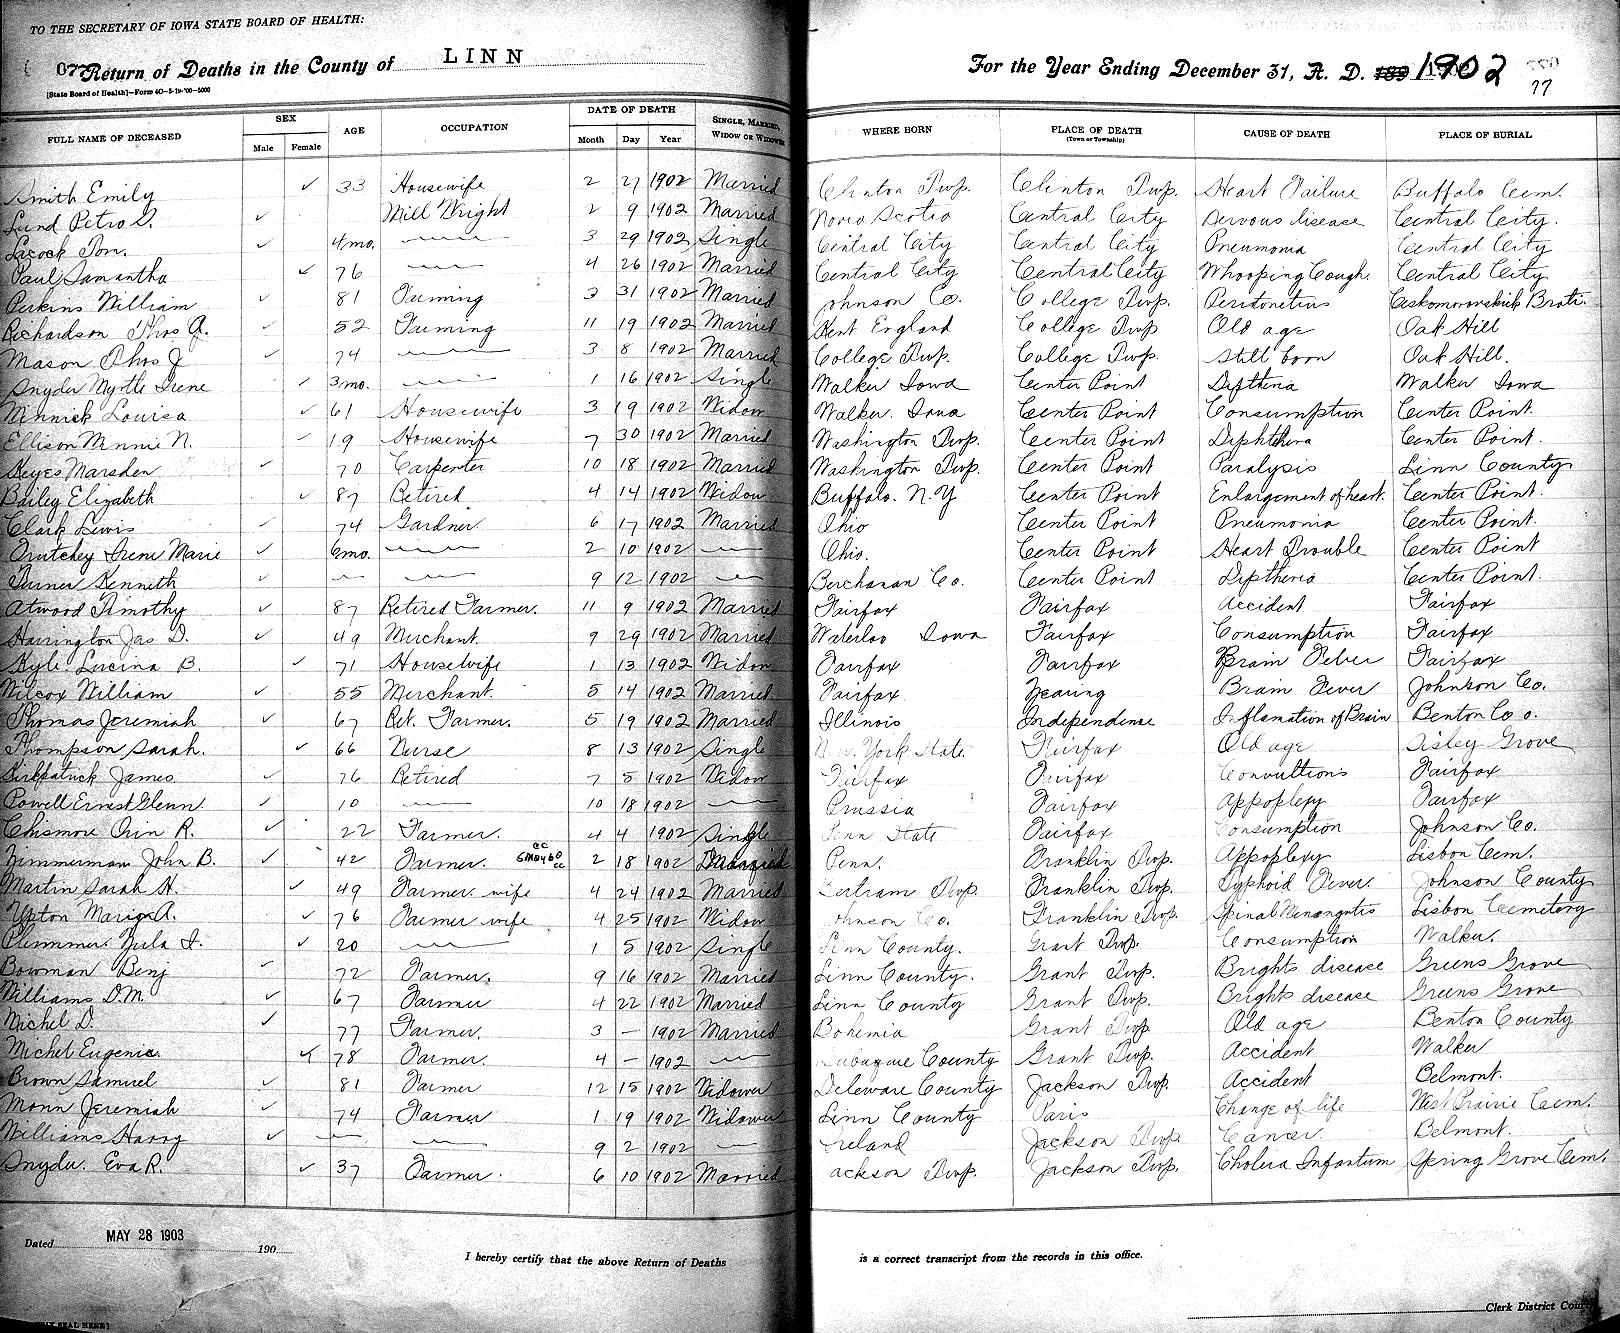 TO THE SECRETARY OF IOWA STATE BOARD OF HEALTH:
077 Return of Deaths in the County of LINN For the Year Ending December 31, A. D. 189 1902
[State Board of Health]—Form 4C—5-19-'00—5000 77
FULL NAME OF DECEASED SEX Male Female AGE OCCUPATION DATE OF DEATH Month Day Year SINGLE, MARRIED, WIDOW OR WIDOWER WHERE BORN PLACE OF DEATH (Town or Township) CAUSE OF DEATH PLACE OF BURIAL
Smith Emily ✓ 33 Housewife 2 27 1902 Married Clinton Twp. Clinton Twp. Heart Failure Buffalo Cem.
Lund Petro S. ✓ Mill Wright 2 9 1902 Married Nova Scotia Central City Nervous disease Central City.
Lacock Tom. ✓ 4mo. 3 29 1902 Single Central City Central City Pneumonia Central City
Paul Samantha ✓ 76 4 26 1902 Married Central City Central City Whooping Cough. Central City
Perkins William ✓ 81 Farming 3 31 1902 Married Johnson Co. College Twp. Peritonetius Brati.
Richardson Thos A. ✓ 52 Farming 11 19 1902 Married Kent England College Twp Old age Oak Hill
Mason Thos J ✓ 74 3 8 1902 Married College Twp. College Twp. Still born Oak Hill.
Snyder Myrtle Irene ✓ 3mo. 1 16 1902 Single Walker Iowa Center Point Diptheria Walker Iowa
Minnick Louisa ✓ 61 Housewife 3 19 1902 Widow Walker. Iowa Center Point Consumption Center Point.
Ellison Minnie N. ✓ 19 Housewife 7 30 1902 Married Washington Twp. Center Point Diphtheria Center Point.
Keyes Marsden ✓ 70 Carpenter 10 18 1902 Married Washington Twp. Center Point Paralysis Linn County
Bailey Elizabeth ✓ 87 Retired 4 14 1902 Widow Buffalo. N.Y Center Point Enlargement of heart. Center Point.
Clark Lewis ✓ 74 Gardner. 6 17 1902 Married Ohio Center Point Pneumonia Center Point.
Trutchey Irene Marie ✓ 9mo. 2 10 1902 Ohio. Center Point Heart Trouble Center Point
Turner Kenneth ✓ 9 12 1902 Berchanan Co. Center Point Diptheria Center Point.
Atwood Timothy ✓ 87 Retired Farmer. 11 9 1902 Married Fairfax Fairfax Accident Fairfax
Harrington Jas D. ✓ 49 Merchant. 9 29 1902 Married Waterloo Iowa Fairfax Consumption Fairfax
Kyle Lucina B. ✓ 71 Housewife 1 13 1902 Widow Fairfax Fairfax Brain Fever Fairfax
Wilcox William ✓ 55 Merchant. 5 14 1902 Married Fairfax Brain Fever Johnson Co.
Thomas Jeremiah ✓ 67 Ret. Farmer. 5 19 1902 Married Illinois Independense Inflamation of Brain Benton Co.
Thompson Sarah. ✓ 66 Nurse 8 13 1902 Single New York State. Fairfax Old age Tisley Grove
Kirkpatrick James ✓ 76 Retired 7 5 1902 Widow Fairfax Fairfax Convultions Fairfax
Powell Ernest Glenn. ✓ 10 10 18 1902 Prussia Fairfax Appoplexy Fairfax
Chismore Orin R. ✓ 22 Farmer. 4 4 1902 Single Penn State Fairfax Consumption Johnson Co.
Zimmerman John B. ✓ 42 Farmer. 2 18 1902 Married Penn. Franklin Twp. Appoplexy Lisbon Cem.
Martin Sarah H. ✓ 49 Farmer wife 4 24 1902 Married Bertram Twp. Franklin Twp. Typhoid Fever. Johnson County
Upton Maria A. ✓ 76 Farmer wife 4 25 1902 Widow Johnson Co. Franklin Twp. Spinal Menangntis Lisbon Cemetery
Plemmer. Zula I. ✓ 20 1 5 1902 Single Linn County. Grant Twp. Consumption Walker.
Bowman Benj ✓ 72 Farmer. 9 16 1902 Married Linn County. Grant Twp. Brights disease Greens Grove
Williams D.M. ✓ 67 Farmer 4 22 1902 Married Linn County Grant Twp. Brights disease Greens Grove
Michel D. ✓ 77 Farmer. 3 — 1902 Married Bohemia Grant Twp Old age Benton County
Michel Eugenia. ✓ 78 Farmer. 4 — 1902 Dubuque County Grant Twp. Accident Walker
Brown Samuel ✓ 81 Farmer 12 15 1902 Widower Deleware County Jackson Twp. Accident Belmont.
Monn Jeremiah ✓ 74 Farmer. 1 19 1902 Widower Linn County Paris Change of life West Prairie Cem.
Williams Harry ✓ 9 2 1902 Ireland Jackson Twp. Cancer Belmont.
Snyder. Eva R. ✓ 37 Farmer. 6 10 1902 Married Jackson Twp. Jackson Twp. Cholera Infantum Spring Grove Cem.
Dated MAY 28 1903 190
I hereby certify that the above Return of Deaths is a correct transcript from the records in this office.
Clerk District Court
SEAL HERE]